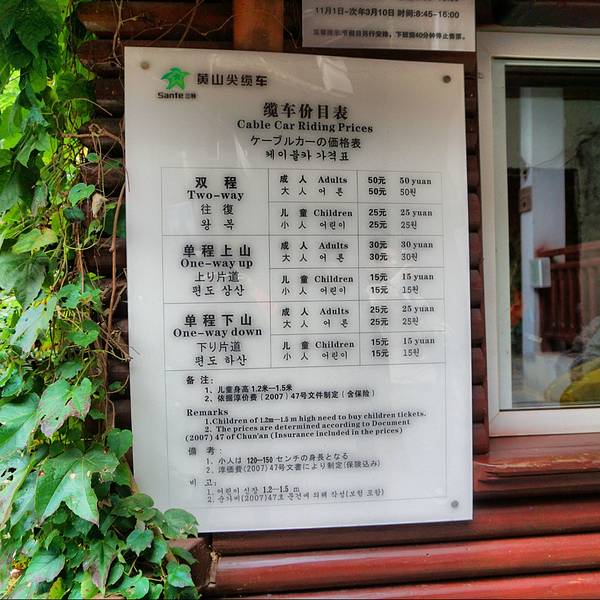 11月1日-次年3月10日 时间:8:45-16:00
黄山尖缆车
Sante三特
缆车价目表
Cable Car Riding Prices
ケーブルカーの価格表
케이블카 가격표
双 程
Two-way
往 復
왕 복
成 人 Adults 50元 50 yuan
大 人 어 른 50元 50원
儿 童 Children 25元 25 yuan
小 人 어린이 25元 25원
单程上山
One-way up
上り片道
편도 상산
成 人 Adults 30元 30 yuan
大 人 어 른 30元 30원
儿 童 Children 15元 15 yuan
小 人 어린이 15元 15원
单程下山
One-way down
下り片道
편도 하산
成 人 Adults 25元 25 yuan
大 人 어 른 25元 25원
儿 童 Children 15元 15 yuan
小 人 어린이 15元 15원
备 注:
1、儿童身高 1.2米—1.5米
2、依据淳价费(2007)47号文件制定(含保险)
Remarks
1.Children of 1.2m—1.5 m high need to buy children tickets.
2. The prices are determined according to Document
(2007) 47 of Chun'an (Insurance included in the prices)
備 考:
1、小人は 120—150 センチの身長となる
2、淳価費(2007)47号文書により制定(保険込み)
비 고:
1、어린이 신장 1.2—1.5 m
2、순가비(2007)47호 문건에 의해 작성(보험 포함)